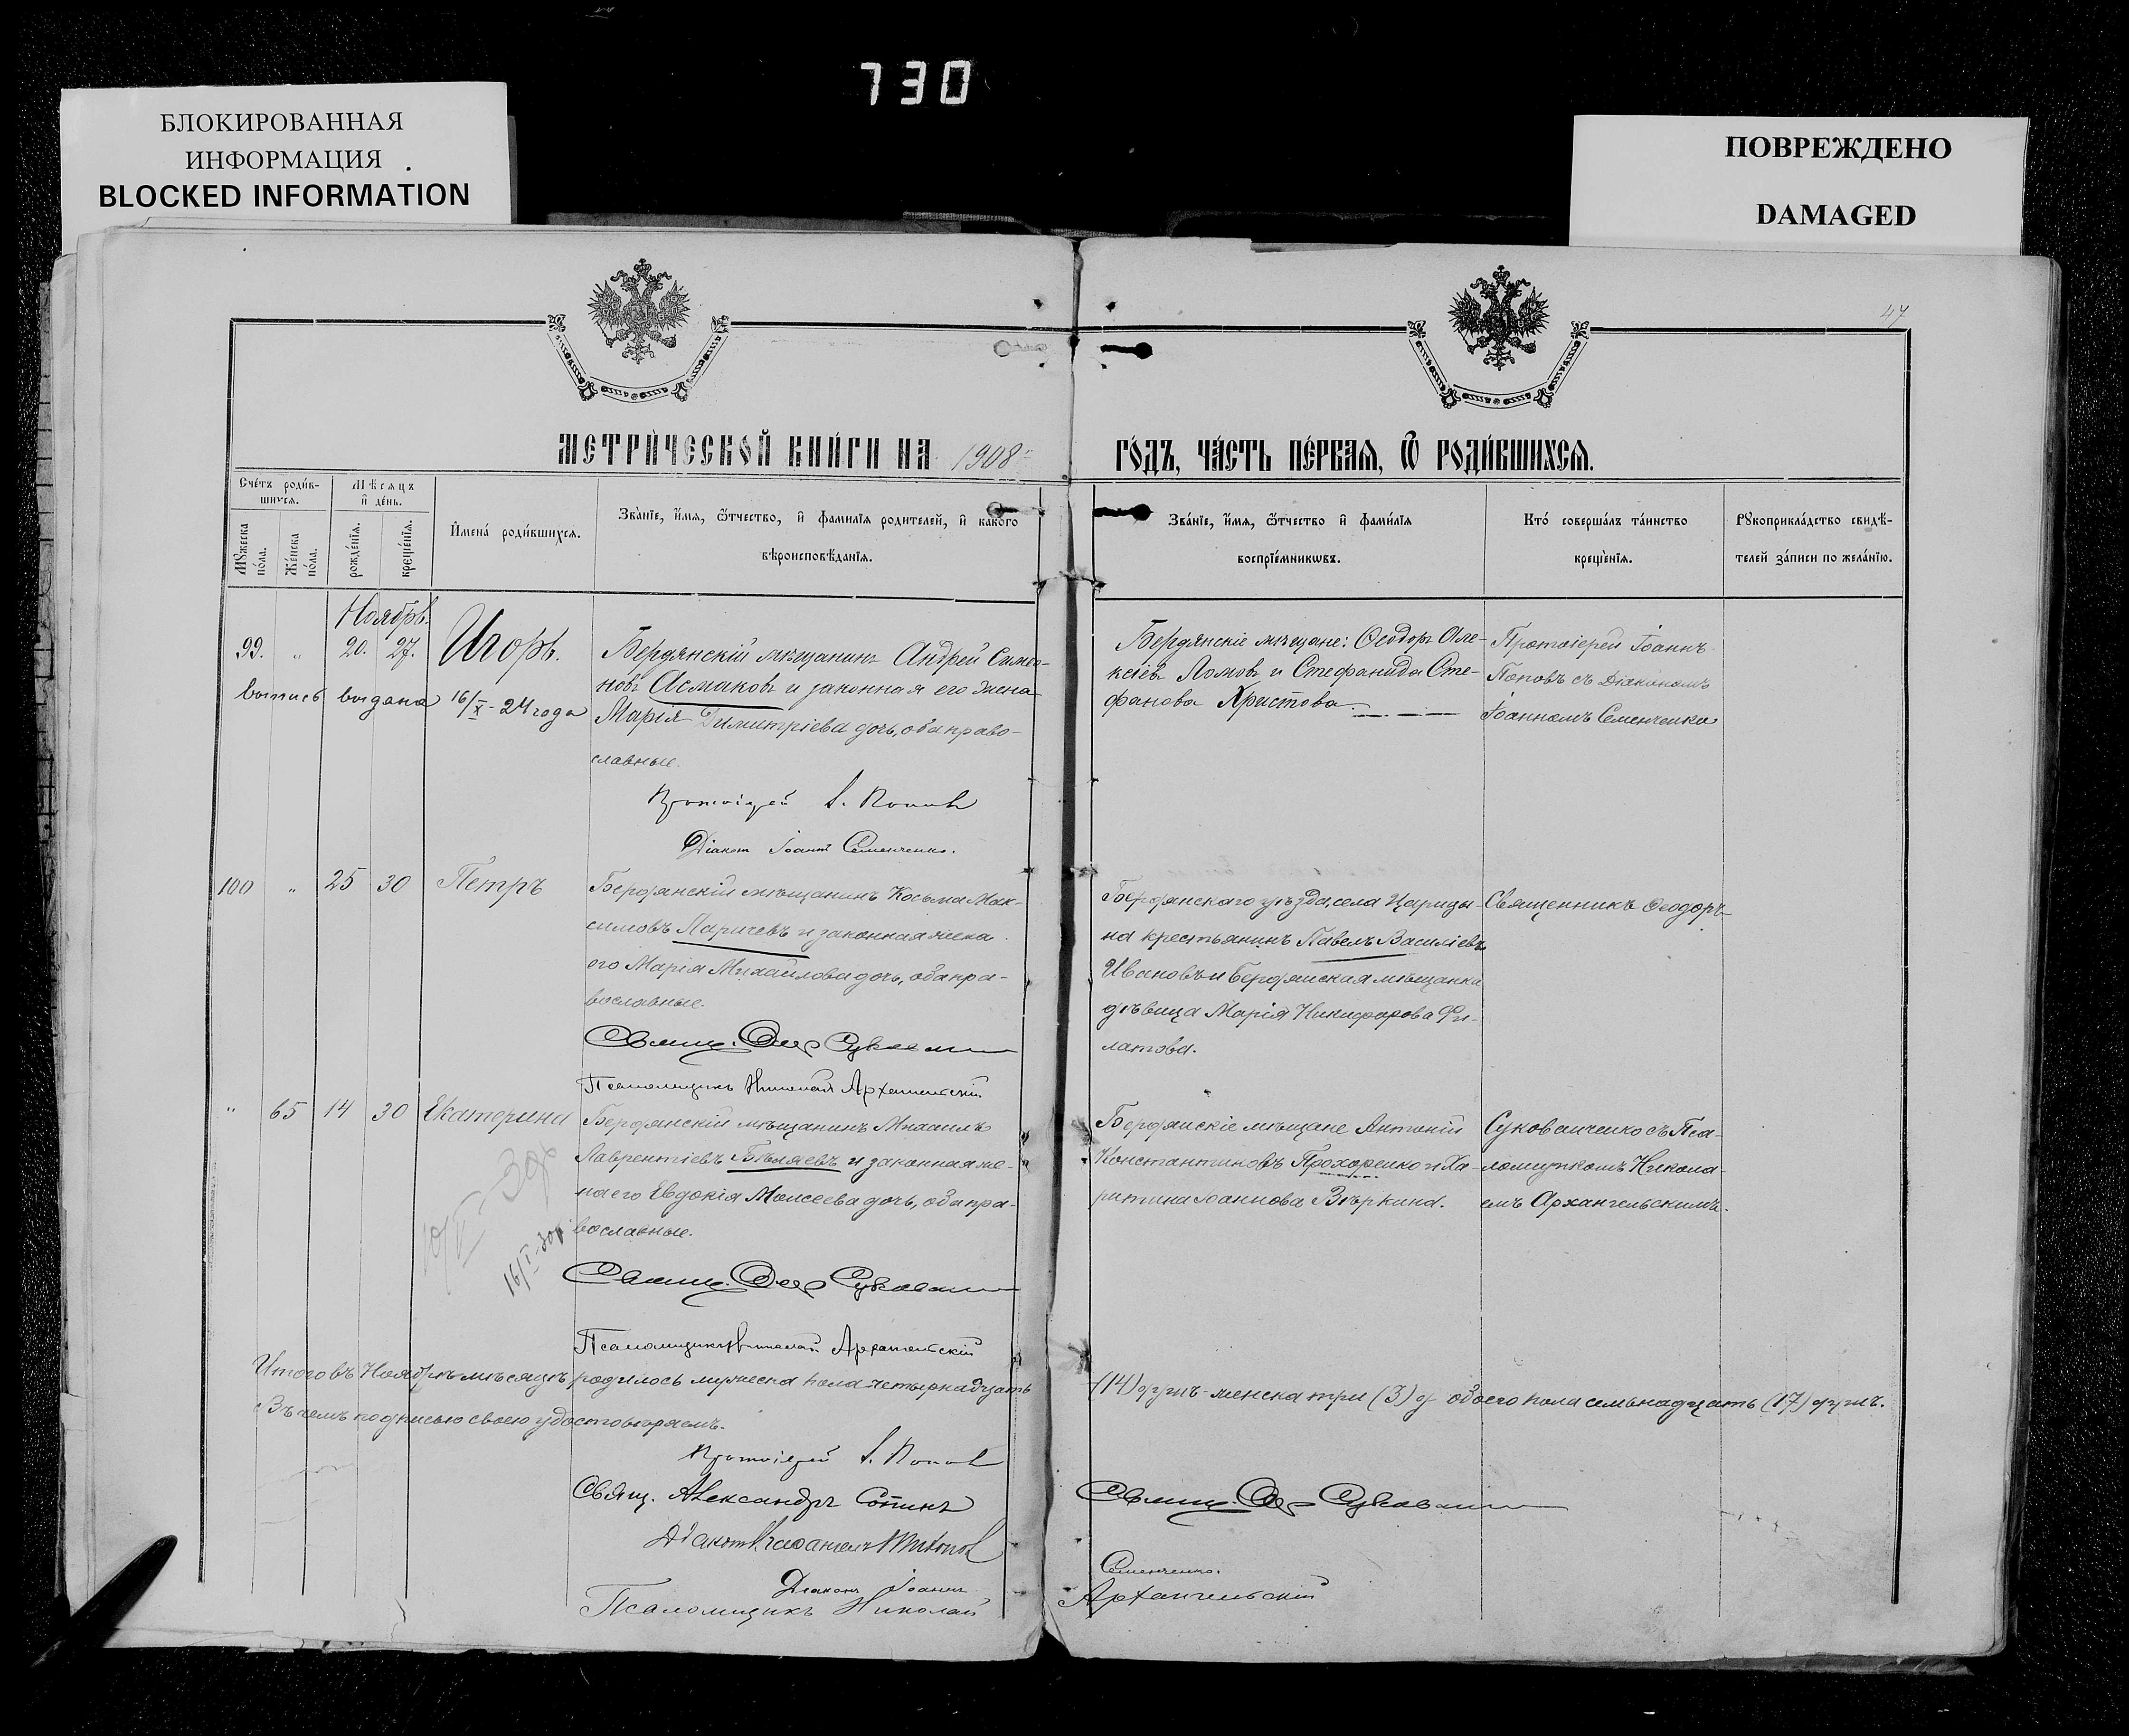 730
БЛОКИРОВАННАЯ
ИНФОРМАЦИЯ
BLOCKED INFORMATION
ПОВРЕЖДЕНО
DAMAGED
47
МЕТРИ́ЧЕСКОЙ КНИ́ГИ НА 1908
ГО́ДЪ, ЧА́СТЬ ПЕ́РВАѦ, Ѿ РОДИ́ВШИХСѦ.
Сче́тъ роди́в-
шихсѧ.
Мѣ́сяцъ
и҆ де́нь.
Мꙋ́жеска
по́ла.
Же́нска
по́ла.
рожде́нїѧ.
креще́нїѧ.
И҆мена́ роди́вшихсѧ.
Зва́нїе, и҆́мѧ, ѻ҆́тчество, и҆ фами́лїѧ родителей, и҆ како́го
вѣроисповѣ́данїѧ.
Зва́нїе, и҆́мѧ, ѻ҆́тчество и҆ фами́лїѧ
воспрїе́мникѡвъ.
Кто́ соверша́лъ та́инство
креще́нїѧ.
Рꙋкоприкла́дство свидѣ́-
телей за́писи по жела́нїю.
Ноябрь.
99. " 20. 27. Игорь.
Бердянскій мѣщанинъ Андрей Симео-
новъ Асмаковъ и законная его жена
Марія Димитріева дочь, оба право-
славные.
выпись выдана 16/X - 24 года
Протоіерей І. Поповъ
Діаконъ Іоаннъ Семенченко.
Бердянскіе мѣщане: Ѳеодоръ Але-
ксіевъ Ломовъ и Стефанида Сте-
фанова Христова.
Протоіерей Іоаннъ
Поповъ съ Діакономъ
Іоанномъ Семенченко
100 " 25 30 Петръ
Бердянскій мѣщанинъ Косьма Мак-
симовъ Паричевъ и законная жена
его Марія Михайлова дочь, оба пра-
вославные.
Псаломщикъ Николай Архангельскій
Бердянскаго уѣзда, села Царицы-
на крестьянинъ Павелъ Василіевъ
Ивановъ и Бердянская мѣщанка
дѣвица Марія Никифорова Фи-
латова.
Священникъ Ѳеодоръ
" 65 14 30 Екатерина
Бердянскій мѣщанинъ Михаилъ
Лаврентіевъ Бѣляевъ и законная же-
на его Евдокія Моисеева дочь, оба пра-
вославные.
Псаломщикъ Николай Архангельскій
Бердянскіе мѣщане Антоній
Константиновъ Прохоренко и Ха-
ритина Іоаннова Вѣркина.
Суковаченко съ Пса-
ломщикомъ Никола-
емъ Архангельскимъ.
Итого въ Ноябрѣ мѣсяцѣ родилось мужеска пола четырнадцать
(14) душъ женска три (3) и обоего пола семьнадцать (17) душъ.
Въ чемъ подписью своею удостовѣряемъ.
Протоіерей І. Поповъ
Свящ. Александръ Сопинъ
Діаконъ
Діаконъ Іоаннъ
Семенченко.
Псаломщикъ Николай
Архангельскій